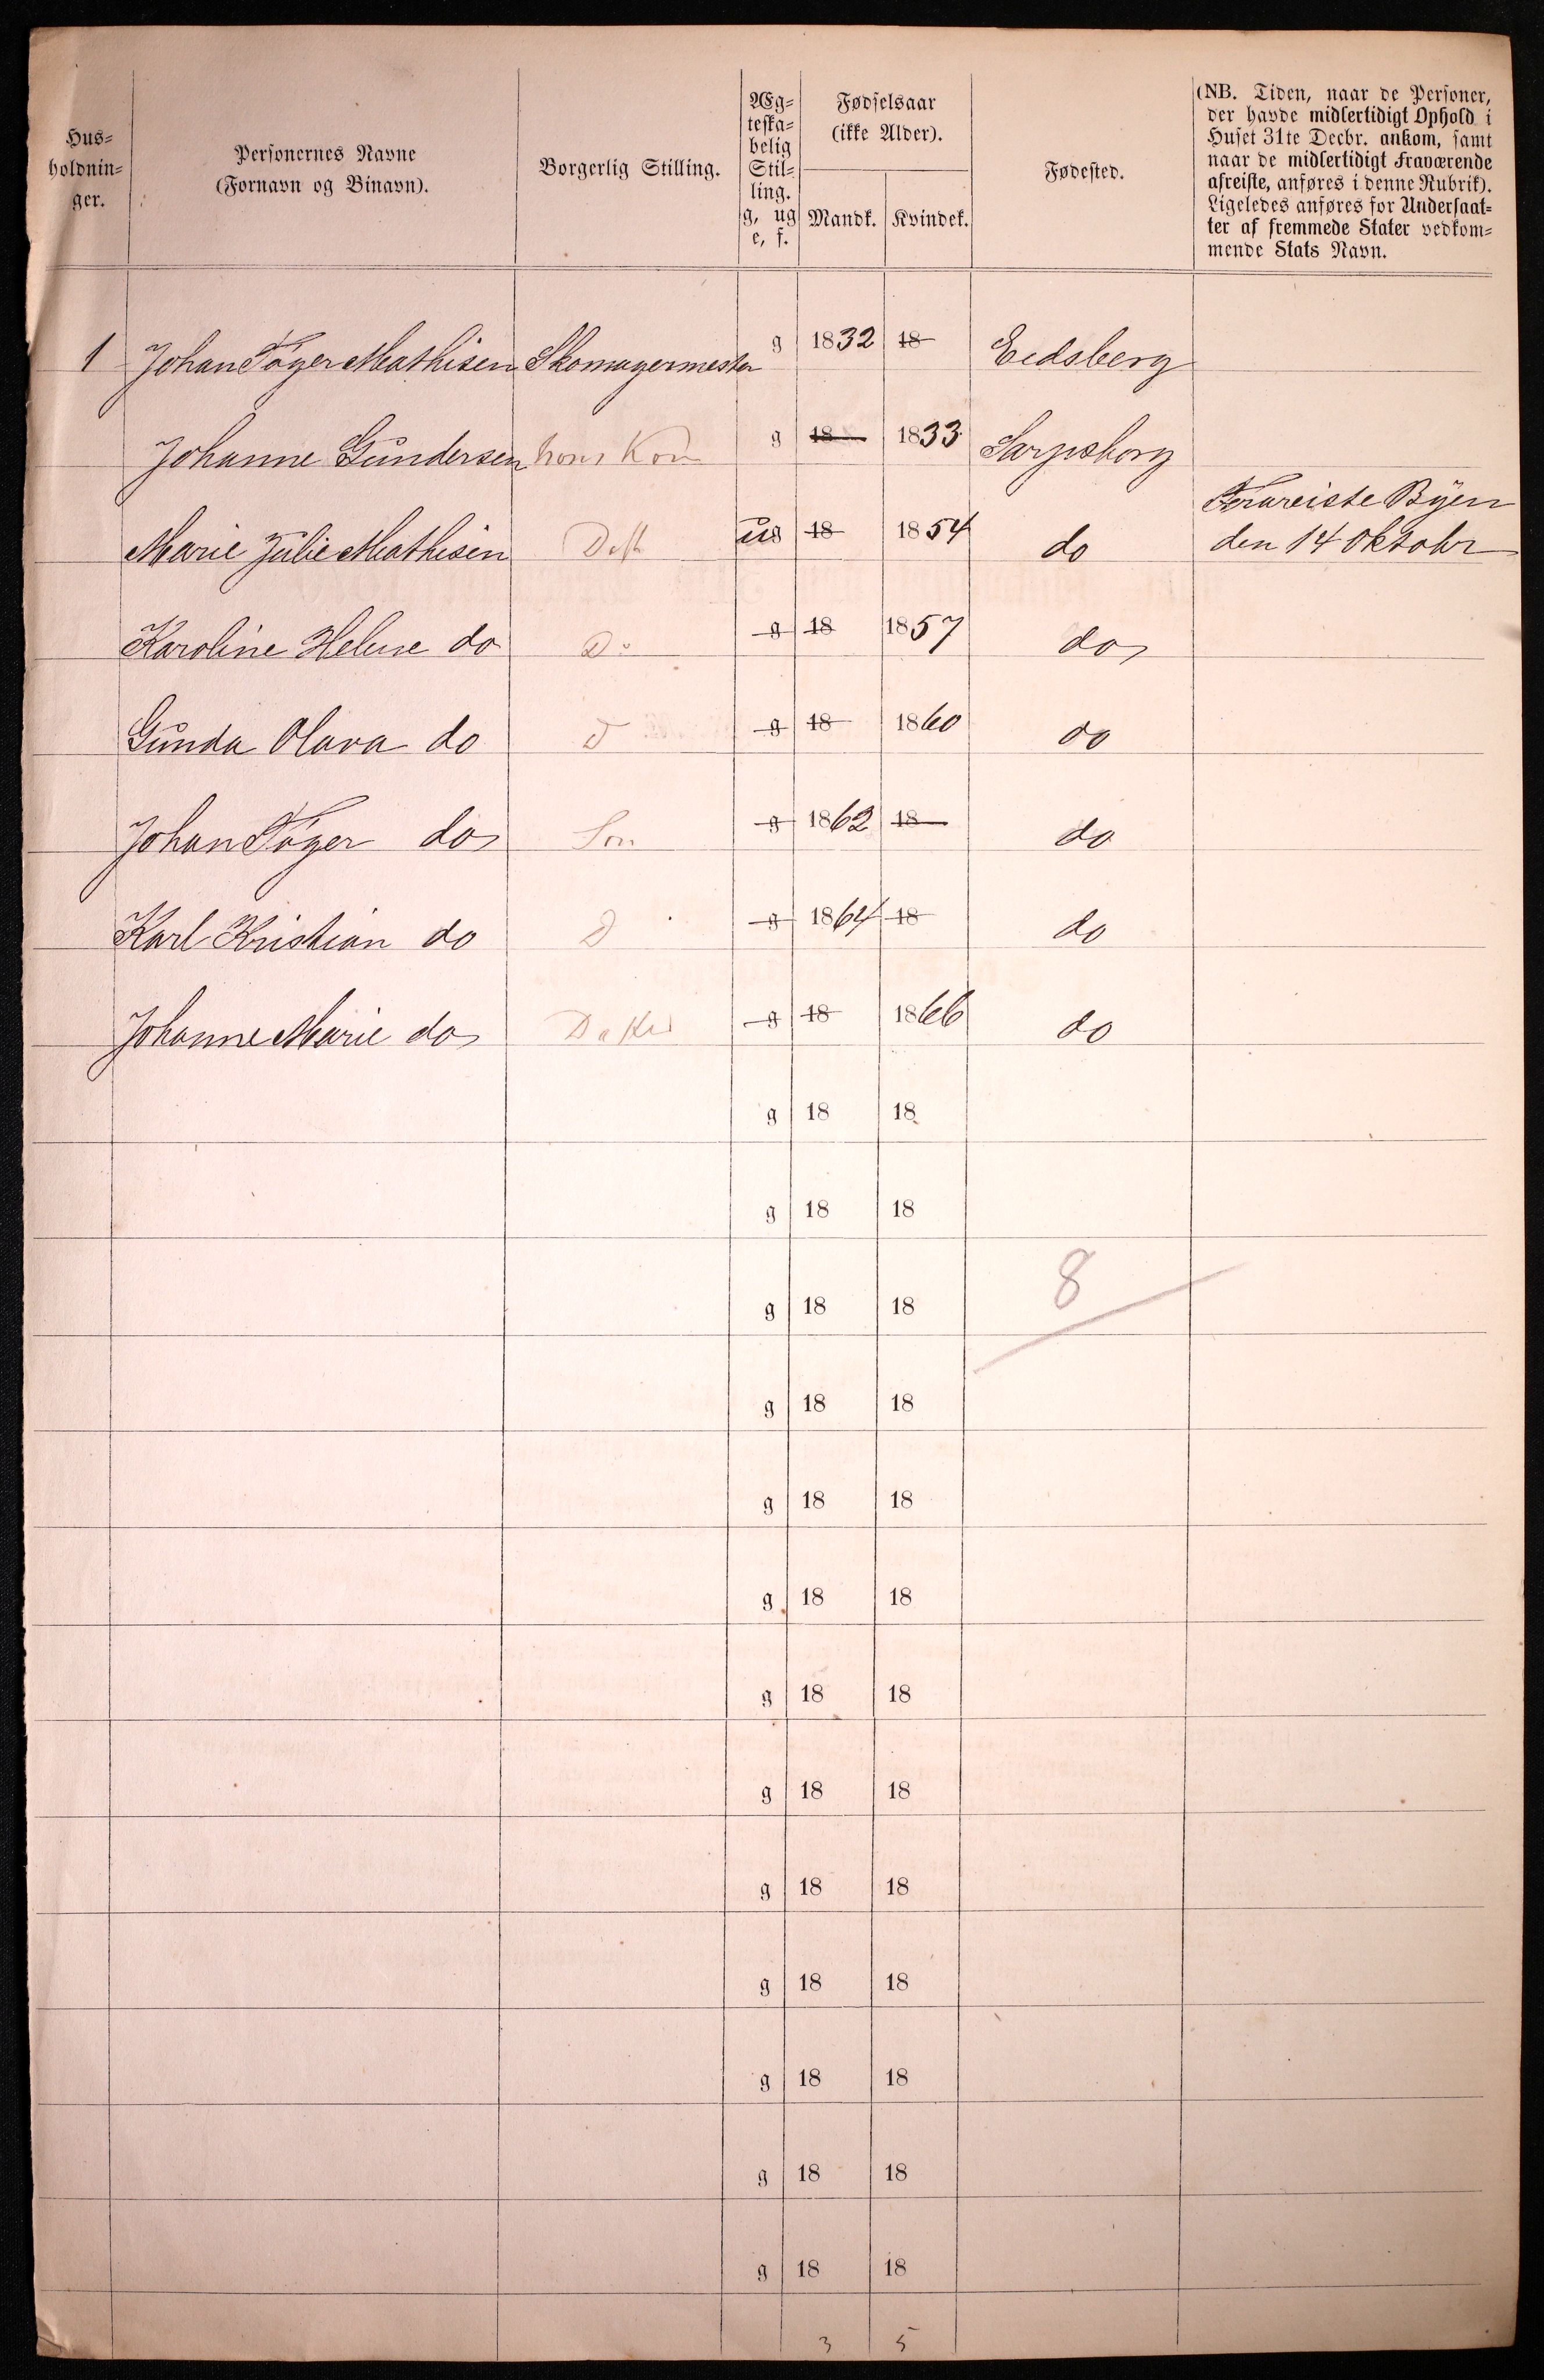 Hus=
holdnin=
ger.
Personernes Navne
(Fornavn og Binavn).
Borgerlig Stilling.
Æg=
teska=
belig
Stil=
ling.
g, ug
e, f.
Fødselsaar
(ikke Alder).
Mandk. Kvindek.
Fødested.
(NB. Tiden, naar de Personer,
der havde midlertidigt Ophold i
Huset 31te Decbr. ankom, samt
naar de midlertidigt Fraværende
afreiste, anføres i denne Rubrik).
Ligeledes anføres for Undersaat=
ter af fremmede Stater vedkom=
mende Stats Navn.
1 Johan Tøger Mathisen Skomagermester g 1832 18 Eidsberg
Johanne Gundersen hans Kone g 18 1833 Sarpsborg
Marie Julie Mathisen Datt ug 18 1854 do Frareiste Byen
den 14 Oktober
Karoline Helene do Do g 18 1857 do
Gunda Olava do D g 18 1860 do
Johan Tøger do Søn g 1862 18 do
Karl Kristian do D g 1864 18 do
Johanne Marie do g 18 1866 do
g 18 18
g 18 18
g 18 18 8
g 18 18
g 18 18
g 18 18
g 18 18
g 18 18
g 18 18
g 18 18
g 18 18
g 18 18
g 18 18
3 5